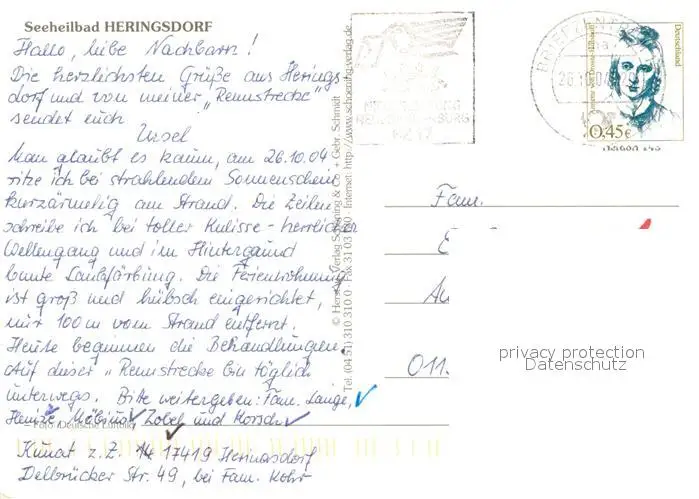 Seeheilbad HERINGSDORF
Hallo, liebe Nachbarn!
Die herzlichsten Grüße aus Herings
dorf und von meiner "Rennstrecke"
sendet euch
Ursel
Man glaubt es kaum, am 26.10.04
sitze ich bei strahlendem Sonnenschein
kurzärmelig am Strand. Die Zeilen
schreibe ich bei toller Kulisse - herrlicher
Wellengang und im Hintergrund
bunte Laubfärbung. Die Ferienwohnung
ist groß und hübsch eingerichtet,
nur 100 m vom Strand entfernt.
Heute beginnen die Behandlungen.
Auf dieser "Rennstrecke bin täglich
unterwegs. Bitte weitergeben: Fam. Lange,
Heinze, Möbius, Zobel und Korsch
Foto: Deutsche Luftbild
Kunat z. Z. 17419 Heringsdorf
Delbrücker Str. 49, bei Fam. Kohr
Tel. (04 51) 310 310 0 Fax 31 03 Internet: http://www.schoening-verlag.de
© Herst. + Verlag Schöning & Co. + Gebr. Schmidt
BRIEFZENTRUM
Deutschland
0,45€
Fam.
E
Au
011.
privacy protection
Datenschutz